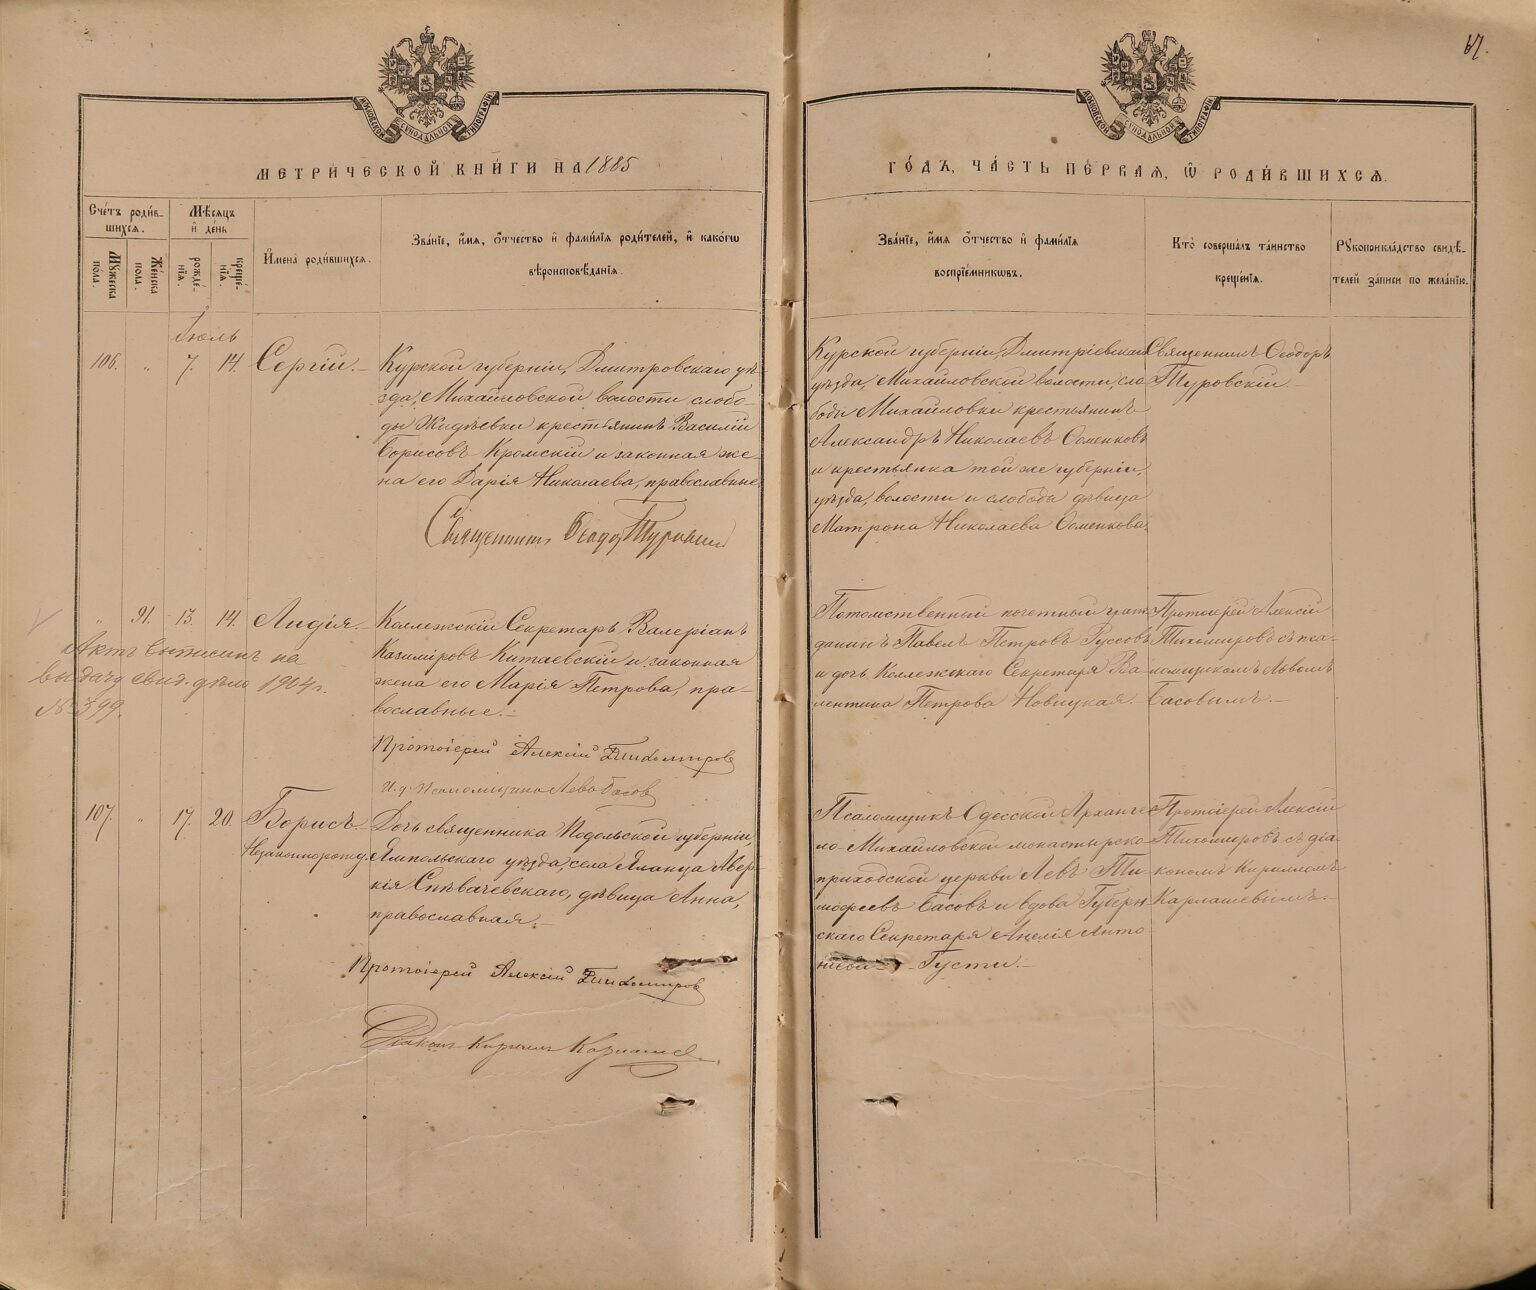 67.
МОСКОВСКОЙ СѴНОДАЛЬНОЙ ТИПОГРАФІИ
МОСКОВСКОЙ СѴНОДАЛЬНОЙ ТИПОГРАФІИ
МЕТРИ́ЧЕСКОЙ КНИ́ГИ НА 1885
ГО́ДЪ, ЧА́СТЬ ПЕ́РВАЯ, Ѡ҆ РОДИ́ВШИХСѦ.
Сче́тъ роди́в-
шихсѧ.
Мѹ́жеска по́ла.
Же́нска по́ла.
Мѣ́сѧцъ
и҆ де́нь
рожде́-
нїѧ.
креще́-
нїѧ.
И҆мена̀ роди́вшихсѧ.
Зва́нїе, и҆́мѧ, ѻ҆́тчество и҆ фами́лїѧ роди́телей, и҆ како́гѡ
вѣроисповѣ́данїѧ.
Зва́нїе, и҆́мѧ ѻ҆́тчество и҆ фами́лїѧ
воспрїе́мникѡвъ.
Кто̀ соверша́лъ та́инство
креще́нїѧ.
Рꙋкоприкла́дство свидѣ́-
телей за́писи по жела́нїю.
Іюль
106. " 7. 14. Сергій.-
Курской губерніи, Дмитровскаго уѣ-
зда, Михайловской волости слобо-
ды Жидѣевки крестьянинъ Василій
Борисовъ Кромскій и законная же-
на его Дарія Николаева, православные.
Священникъ Ѳеодоръ Туровскій
Курской губерніи, Дмитріевскаго
уѣзда, Михайловской волости, сло
боды Михайловки крестьянинъ
Александръ Николаевъ Соменковъ
и крестьянка той же губерніи,
уѣзда, волости и слободы дѣвица
Матрона Николаева Соменкова
Священникъ Ѳеодоръ
Туровскій -
" 91. 13. 14. Лидія.-
Актъ выписанъ на
выдачу свид. дѣло 1904 г.
№ 399.
Коллежскій Секретарь Валеріанъ
Казиміровъ Китаевскій и законная
жена его Марія Петрова, пра-
вославные.-
Протоіерей Алексій Тихомировъ
И. д. Псаломщика Левъ Басов
Потомственный почетный граж-
данинъ Павелъ Петровъ Руссовъ
и дочь Коллежскаго Секретаря Ва
лентина Петрова Новицкая.-
Протоіерей Алексій
Тихомировъ съ пса-
ломщикомъ Львомъ
Басовымъ.-
107. " 17. 20. Борисъ.-
незаконнорожд.
Дочь священника Подольской губерніи,
Ямпольскаго уѣзда, села Яланца Авер-
кія Спѣвачевскаго, дѣвица Анна,
православная.-
Протоіерей Алексій Тихомировъ
Діаконъ Кириллъ Карлашев
Псаломщикъ Одесской Арханге
ло-Михайловской монастырско-
приходской церкви Левъ Ти-
моѳеевъ Басовъ и вдова Губерн-
скаго Секретаря Анелія Анто-
ніева - Густи.-
Протоіерей Алексій
Тихомировъ съ діа-
кономъ Кирилломъ
Карлашевымъ.-